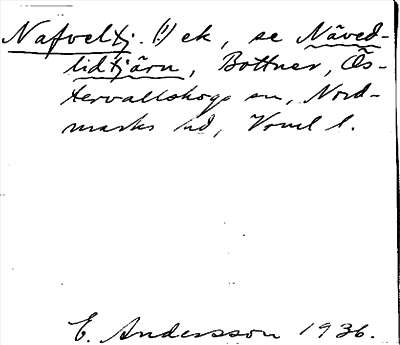 Nafveltj. (!) ek, se Näved-
lidtjärn, Bottner, Ös-
tervallskogs sn, Nord-
marks hd, Vrml l.
E. Andersson 1936.